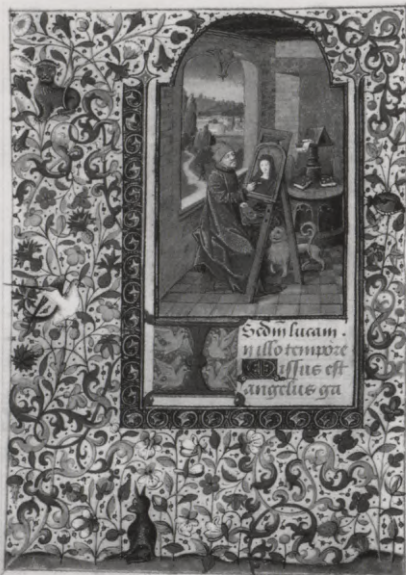 Secdm lucam.
n illo tempore
Missus est
angelus ga